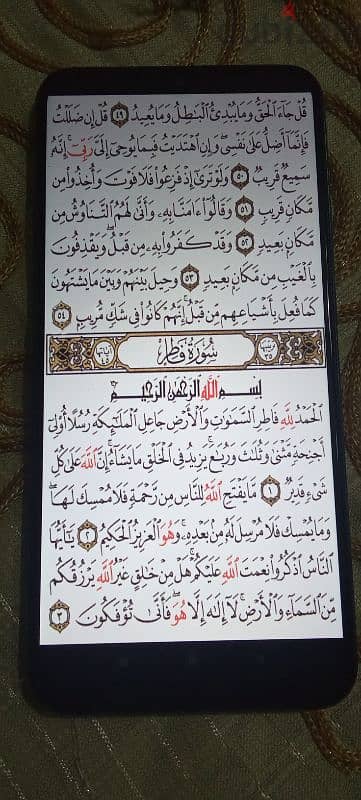 قُلْ جَآءَ ٱلْحَقُّ وَمَا يُبْدِئُ ٱلْبَٰطِلُ وَمَا يُعِيدُ ٤٩ قُلْ إِن ضَلَلْتُ
فَإِنَّمَآ أَضِلُّ عَلَىٰ نَفْسِى وَإِنِ ٱهْتَدَيْتُ فَبِمَا يُوحِىٓ إِلَىَّ رَبِّىٓ إِنَّهُۥ
سَمِيعٌ قَرِيبٌ ٥٠ وَلَوْ تَرَىٰٓ إِذْ فَزِعُوا۟ فَلَا فَوْتَ وَأُخِذُوا۟ مِن
مَّكَانٍ قَرِيبٍ ٥١ وَقَالُوٓا۟ ءَامَنَّا بِهِۦ وَأَنَّىٰ لَهُمُ ٱلتَّنَاوُشُ مِن
مَّكَانٍۭ بَعِيدٍ ٥٢ وَقَدْ كَفَرُوا۟ بِهِۦ مِن قَبْلُ وَيَقْذِفُونَ
بِٱلْغَيْبِ مِن مَّكَانٍۭ بَعِيدٍ ٥٣ وَحِيلَ بَيْنَهُمْ وَبَيْنَ مَا يَشْتَهُونَ
كَمَا فُعِلَ بِأَشْيَاعِهِم مِّن قَبْلُ إِنَّهُمْ كَانُوا۟ فِى شَكٍّ مُّرِيبٍۭ ٥٤
ترتيبها ٣٥ سُورَةُ فَاطِرٍ آياتها ٤٥
بِسْمِ ٱللَّهِ ٱلرَّحْمَٰنِ ٱلرَّحِيمِ
ٱلْحَمْدُ لِلَّهِ فَاطِرِ ٱلسَّمَٰوَٰتِ وَٱلْأَرْضِ جَاعِلِ ٱلْمَلَٰٓئِكَةِ رُسُلًا أُو۟لِىٓ
أَجْنِحَةٍ مَّثْنَىٰ وَثُلَٰثَ وَرُبَٰعَ يَزِيدُ فِى ٱلْخَلْقِ مَا يَشَآءُ إِنَّ ٱللَّهَ عَلَىٰ كُلِّ
شَىْءٍ قَدِيرٌ ١ مَّا يَفْتَحِ ٱللَّهُ لِلنَّاسِ مِن رَّحْمَةٍ فَلَا مُمْسِكَ لَهَا
وَمَا يُمْسِكْ فَلَا مُرْسِلَ لَهُۥ مِنۢ بَعْدِهِۦ وَهُوَ ٱلْعَزِيزُ ٱلْحَكِيمُ ٢ يَٰٓأَيُّهَا
ٱلنَّاسُ ٱذْكُرُوا۟ نِعْمَتَ ٱللَّهِ عَلَيْكُمْ هَلْ مِنْ خَٰلِقٍ غَيْرُ ٱللَّهِ يَرْزُقُكُم
مِّنَ ٱلسَّمَآءِ وَٱلْأَرْضِ لَآ إِلَٰهَ إِلَّا هُوَ فَأَنَّىٰ تُؤْفَكُونَ ٣